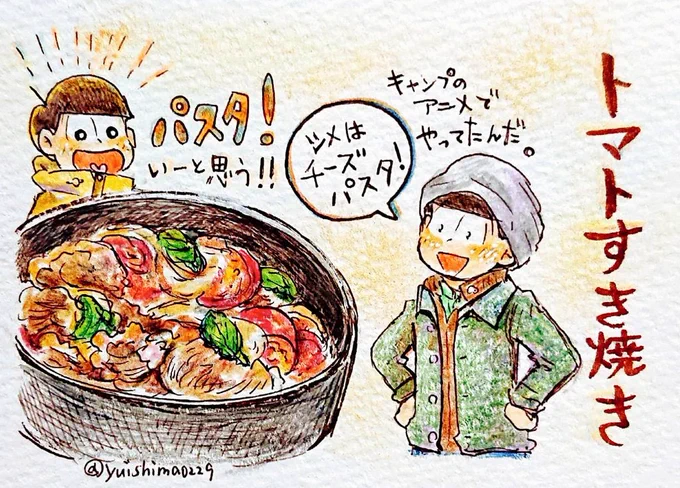 トマトすき焼き
キャンプの
アニメで
やってたんだ。
シメは
チーズ
パスタ！
パスタ！
いーと思う!!
@yuishima0229